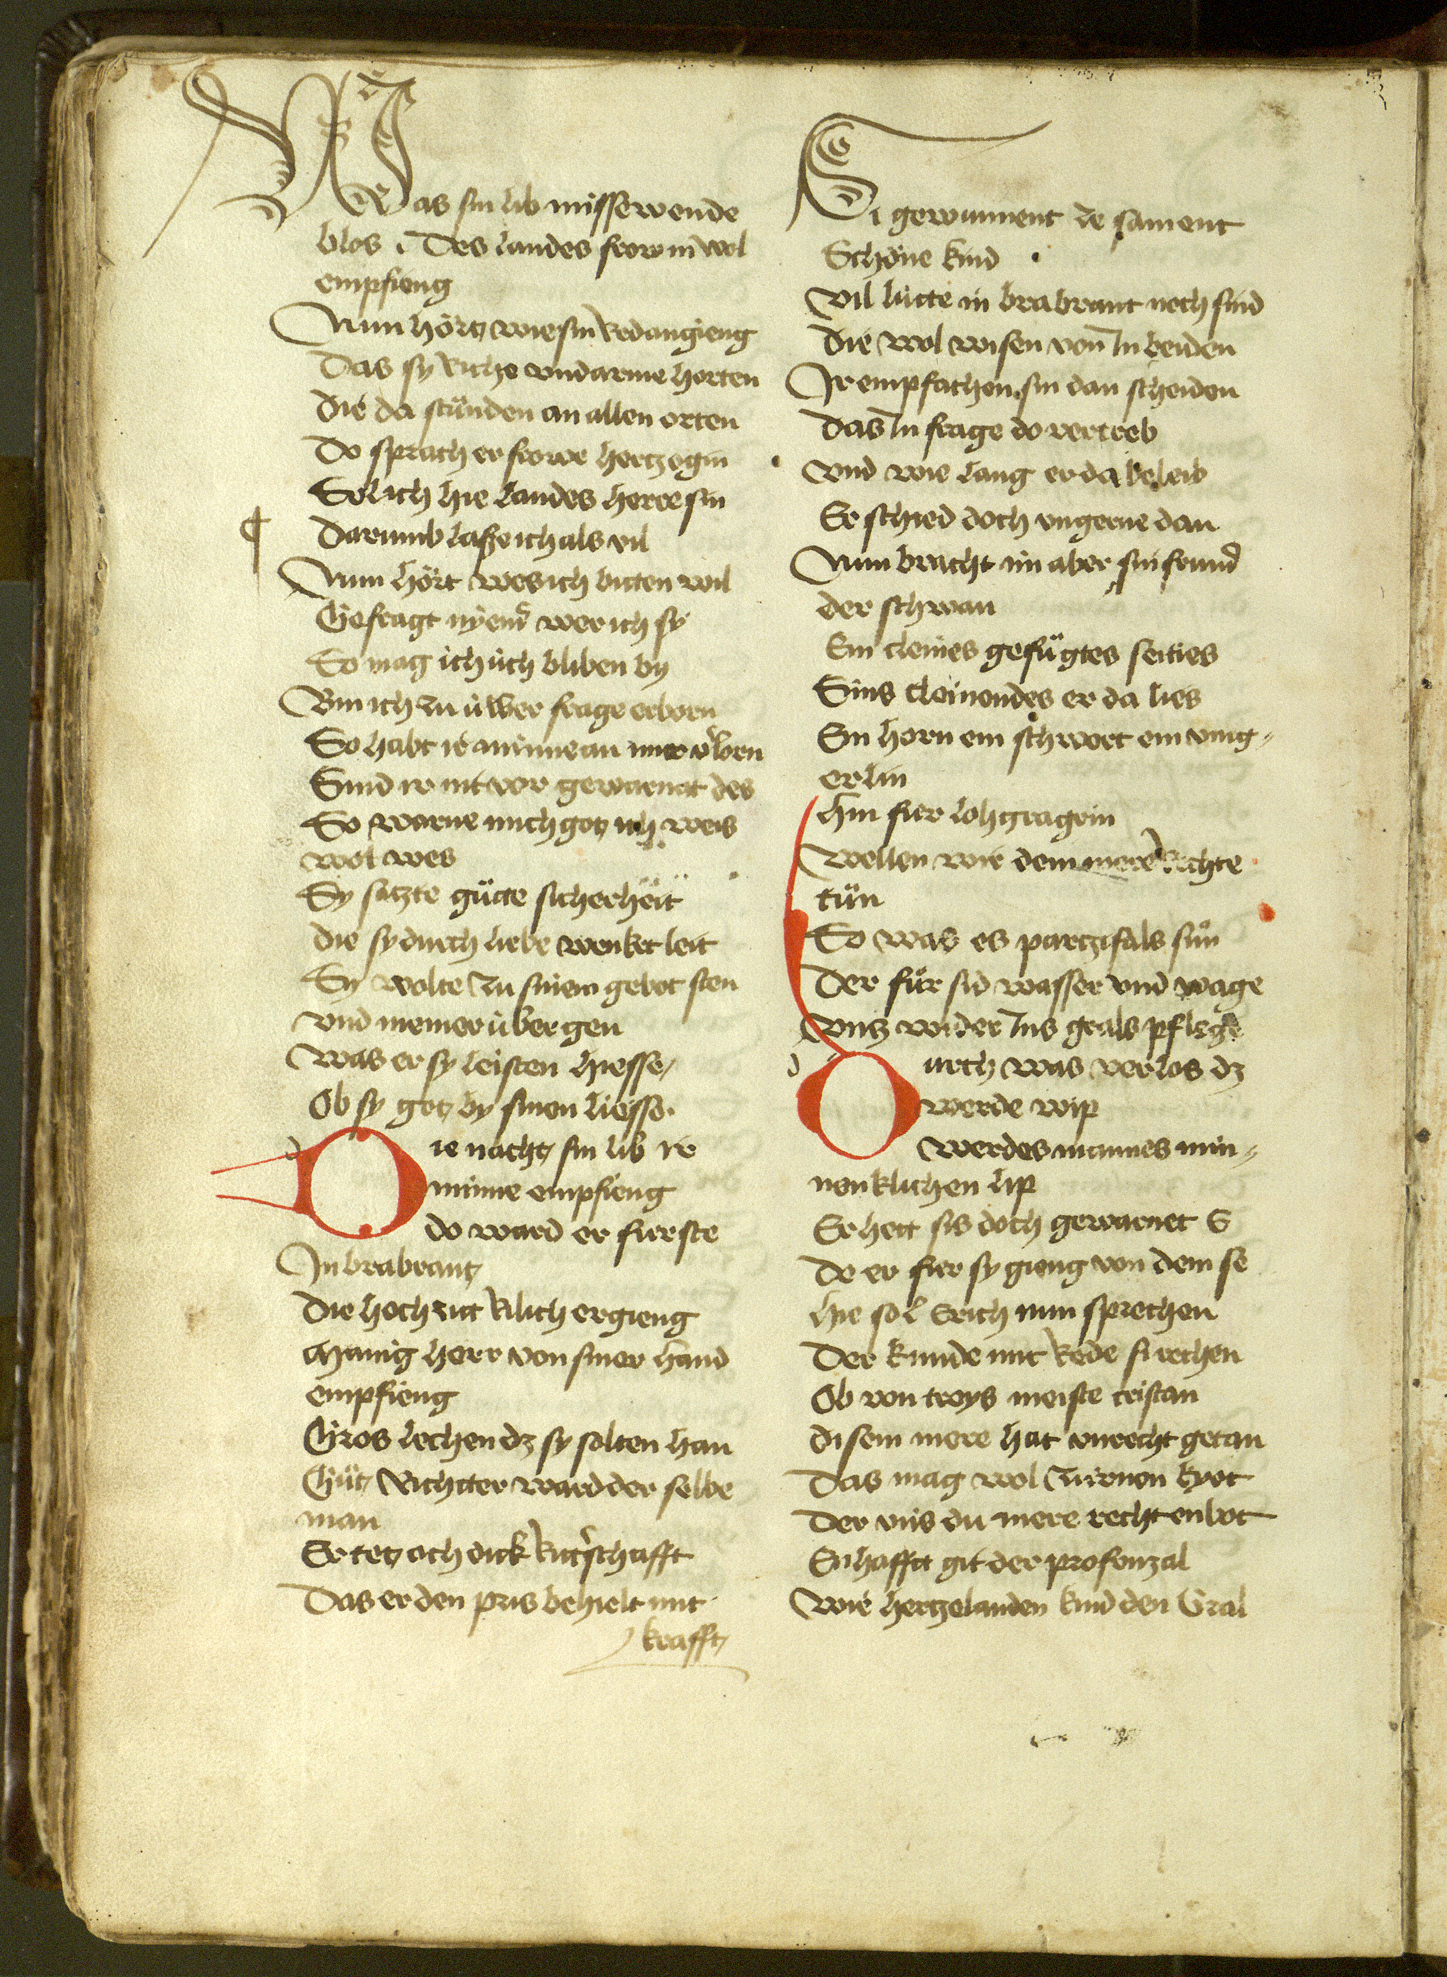 Was sin lib missewende
blos . Des landes frow in wol
empfieng
Nun hörtz wie sin Red angieng
Das sy Riche vnd arme horten
Die da stůnden an allen orten
Do sprach er frowe hertzogin
Sol ich hie landes herre sin
Darumb lasse ich als vil
Nun hört wes ich biten wil
Gefragt nyemer wer ich sy
So mag ich üch bliben by
Bin ich zu üwer frage erborn
So habt ir minne an mir v̓lorn
Sind ir nit vor gewarnat des
So warne mich gotz er weis
wol wes
Sy satzte gůtte sicherheit
Die sy durch liebe wenket leit
Sy wolte zu sinem gebot sten
vnd niemer übergen
Was er sy leisten hiesse
Ob sy got by sinen liesse
Die nacht sin lib ir
minne empfieng
do ward er fürste
In brabrant
Die hochzit Rilich ergieng
Manig herr von siner hand
empfieng
Gros lechen dz sy solten han
Gůt Richtter ward der selbe
man
Er tet och dick Rit̓schafft
Das er den pris behielt mit
krafft
Si gewunnent le sament
Schöne kind
Vil lütte in brabrant noch sind
Die wol wisen von In beiden
Ir empfachen sin dan scheiden
Das In frage do vertreib
Vnd wie lang er da beleib
Er schied doch vngerne dan
Nun bracht im aber sin frund
der schwan
Ein cleines gefůgtes seities
Sins cleinendes er da lies
Sin horn ein schwert ein ving„
erlin
Hin fur lohgragrin
Wellen wir dem mere Rechte
tůn
So was es partzifals sůn
Der fůr sid wasser vnd wäge
Vntz wider Ins grals pflege
Durch was verlos dz
werde wip
Werdes mannes min„
nenklichen lip
Er hett sis doch gewarnet E
Do er fur sy gieng von dem se
Hie sol Erich nun sprechen
Der kunde mit Rede sv rechen
Ob von troys meiste cristan
Disem mere hat vnrecht getan
Das mag wol zürnen kyot
Der vns du mere recht enbot
Enhafft git der profenzal
Wie hertzelauden kind den Gral